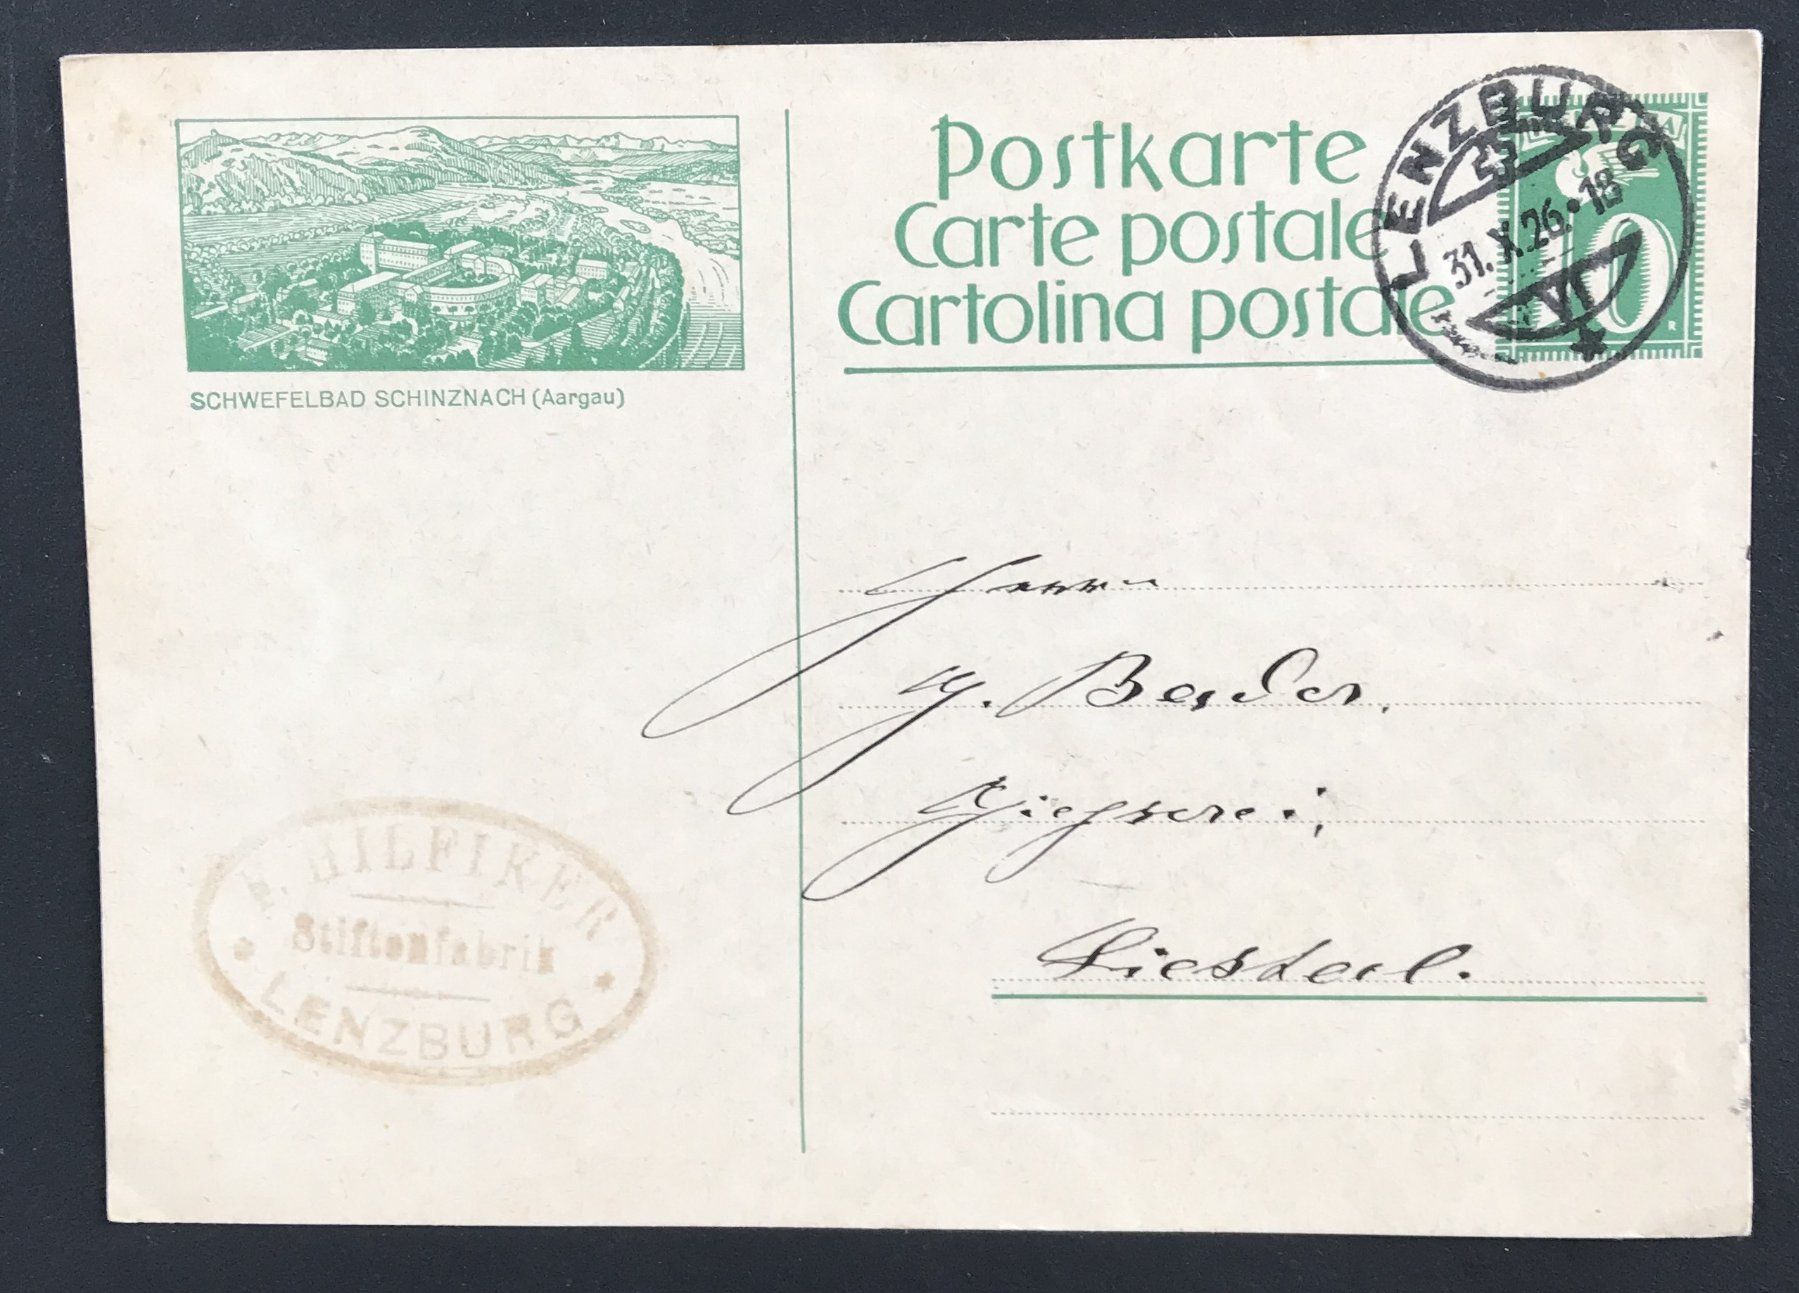 SCHWEFELBAD SCHINZNACH (Aargau)
Postkarte
Carte postale
Cartolina postale
LENZBURG
31.X.26.18
VI
10
Herrn
Bader.
Giesserei,
Liestal.
F. HILFIKER
Stiftenfabrik
LENZBURG